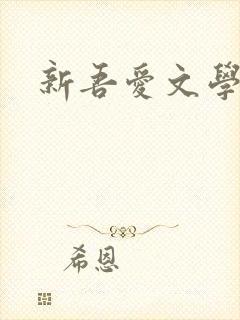 新吾愛文學
希恩